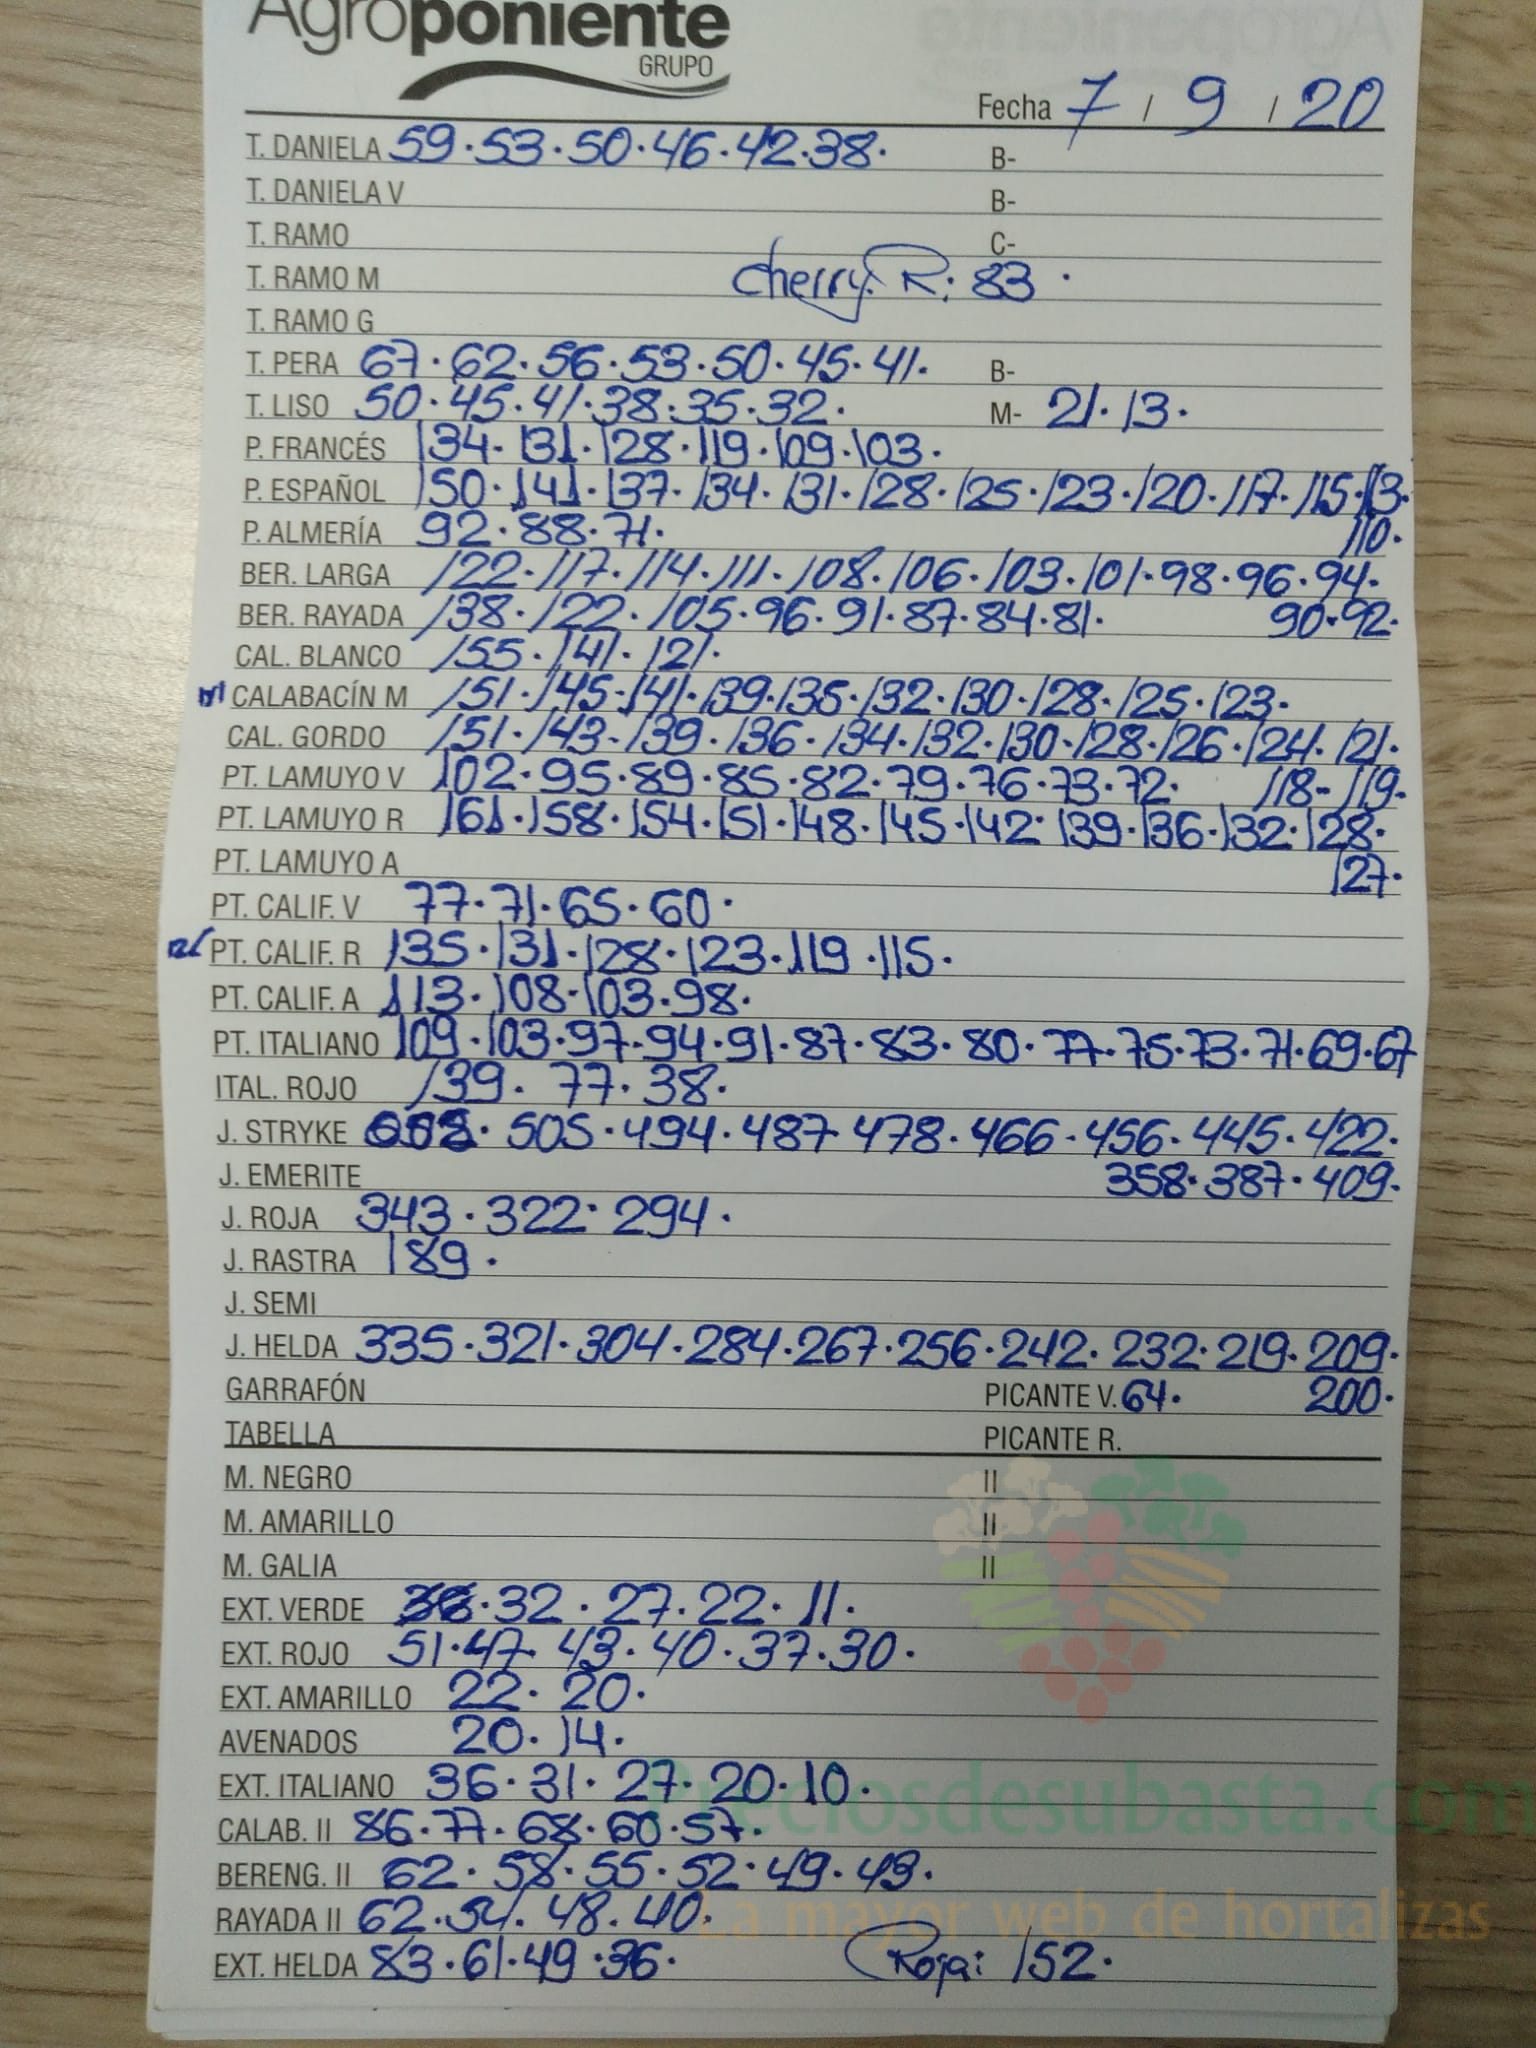 Agroponiente
GRUPO
Fecha 7 / 9 / 20
T. DANIELA 59·53·50·46·42·38· B-
T. DANIELA V B-
T. RAMO C-
T. RAMO M Cherry R: 83 ·
T. RAMO G
T. PERA 67·62·56·53·50·45·41· B-
T. LISO 50·45·41·38·35·32· M- 21·13·
P. FRANCÉS 134·131·128·119·109·103·
P. ESPAÑOL 150·141·137·134·131·128·125·123·120·117·115·113·
P. ALMERÍA 92·88·71· 110·
BER. LARGA 122·117·114·111·108·106·103·101·98·96·94·
BER. RAYADA 138·122·105·96·91·87·84·81· 90·92·
CAL. BLANCO 155·141·121·
CALABACÍN M 151·145·141·139·135·132·130·128·125·123·
CAL. GORDO 151·143·139·136·134·132·130·128·126·124·121·
PT. LAMUYO V 102·95·89·85·82·79·76·73·72· 118·119·
PT. LAMUYO R 161·158·154·151·148·145·142·139·136·132·128·
PT. LAMUYO A 127·
PT. CALIF. V 77·71·65·60·
PT. CALIF. R 135·131·128·123·119·115·
PT. CALIF. A 113·108·103·98·
PT. ITALIANO 109·103·97·94·91·87·83·80·77·75·73·71·69·67
ITAL. ROJO 139·77·38·
J. STRYKE 505·494·487·478·466·456·445·422·
J. EMERITE 358·387·409·
J. ROJA 343·322·294·
J. RASTRA 189·
J. SEMI
J. HELDA 335·321·304·284·267·256·242·232·219·209·
GARRAFÓN PICANTE V. 64· 200·
TABELLA PICANTE R.
M. NEGRO II
M. AMARILLO II
M. GALIA II
EXT. VERDE 32·27·22·11·
EXT. ROJO 51·47·43·40·37·30·
EXT. AMARILLO 22·20·
AVENADOS 20·14·
EXT. ITALIANO 36·31·27·20·10·
Preciosdesubasta.com
CALAB. II 86·77·68·60·57·
BERENG. II 62·58·55·52·49·43·
RAYADA II 62·54·48·40·
La mayor web de hortalizas
EXT. HELDA 83·61·49·36· Roja: 152·